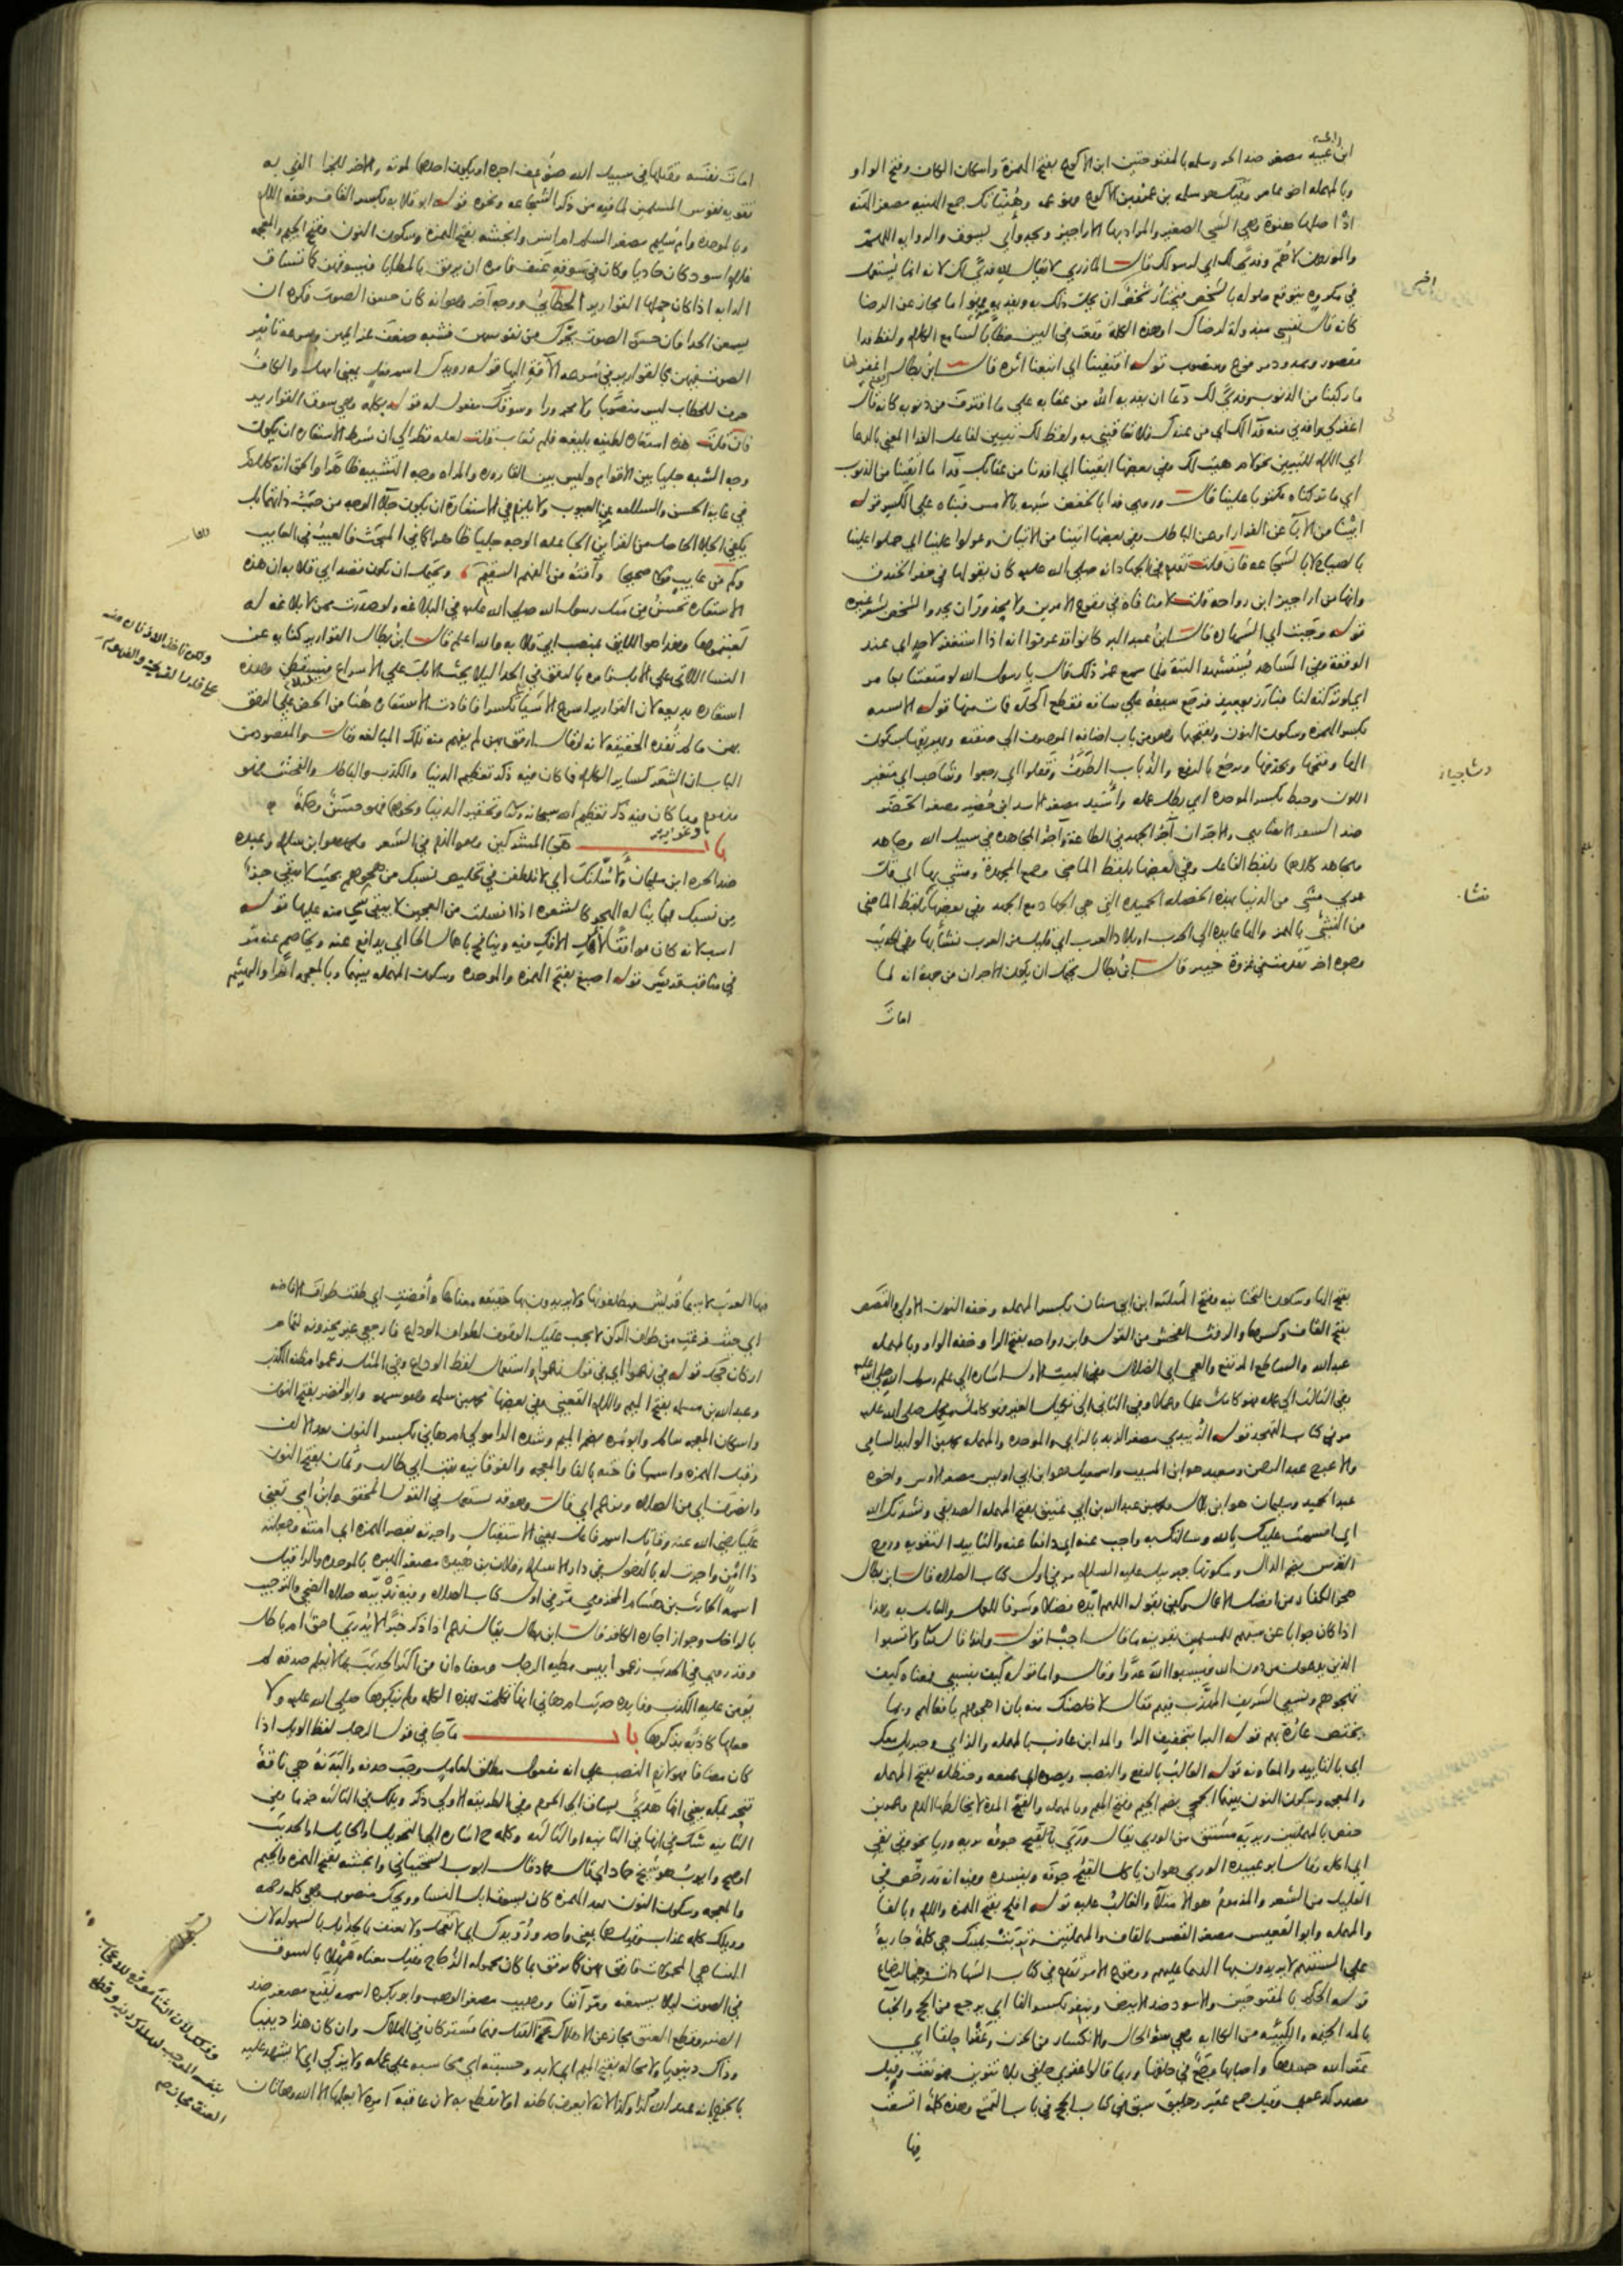 ابن عبيد مصغر ضد الحر وسلمه بالمفتوحتين ابن الاكوع بفتح الهمزة واسكان الكاف وفتح الواو
وبالمهمله اخو عامر وقيل هو سلمه بن عمرو بن الاكوع وهو عمه وهنيهاتك جمع الهنيه مصغر الهنه
اذ اصلها هنوة وهي الشي الصغير والمراد بها الاراجيز ويحدو اي يسوق والروايه اللهم
والموزون لاهم وفدي لك اي لرسولك قال المازري لا يقال لله فدي لك لانه انما يستعمل
في مكروه يتوقع حلوله بالشخص فيختار شخص ان يحل ذلك به ويفديه فهو اما مجاز عن الرضا
كانه قال نفسي مبذولة لرضاك او هذه الكلمة وقعت في البين خطابا لسامع الكلام ولفظ فدا
مقصور وممدود مرفوع ومنصوب قوله اقتفينا اي اتبعنا اثره قال ابن بطال اغفر لنا
ما ركبنا من الذنوب وفدي لك دعا ان يفديه الله من عقابه على ما اقترف من ذنوبه كانه قال
اغفر لي وافدني منه فدا لك اي من عندك فلا تعاقبني به ولفظ لك تبيين لفاعل الفدا المعني بالدعا
اي اللام للتبيين نحو لام هيت لك وفي بعضها ابقينا اي افدنا من عقابك فدا ما ابقينا من الذنوب
اي ما تركناه مكتوبا علينا قال وروي فدا بالخفض شبه بالامس فبناه على الكسر قوله
ابينا من الابا عن الفرار او عن الباطل وفي بعضها اتينا من الاتيان وعولوا علينا اي حملوا علينا
بالصياح لا بالشجاعه فان قلت تقدم في الجهاد انه صلى الله عليه كان يقولها في حفر الخندق
وانها من اراجيز ابن رواحه قلت لا منافاة في وقوع الامرين ولا محذور ان يحدو الشخص بشعر غيره
قوله وجبت اي الشهاده قال ابن عبد البر كانوا قد عرفوا انه اذا استغفر لاحد اي عند
الوقفة وفي المشاهد يستشهد البتة فلما سمع عمر ذلك قال يا رسول الله لو متعتنا بعامر
اي لو تركته لنا فبارز يومئذ فرجع سيفه على ساقه فقطع اكحله فمات منها قوله الانسيه
بكسر الهمزة وسكون النون وبفتحها وهو من باب اضافه الموصوف الى صفته ويهريقها بسكون
الها وفتحها وبحذفها ويرجع بالرفع والذباب الطرف وقفلوا اي رجعوا وشاحبا اي متغير
اللون وحبط بكسر الموحده اي بطل عمله واسيد مصغر الاسد ابن حضير مصغر الحضر
ضد السفر الانصاري والاجران اجر الجهد في الطاعة واجر المجاهده في سبيل الله وجاهد
مجاهد كلاهما بلفظ الفاعل وفي بعضها بلفظ الماضي وجمع المجهدة ومشي بها اي قل
عربي مشى من الدنيا بهذه الخصله الحميده التي هي الجهاد مع الجهد وفي بعضها بلفظ الماضي
من النشئ بالهمز والها عايده الى الحرب او بلاد العرب اي قليل من العرب نشا بها وفي الحديث
وجوه اخر تقدمت في غزوة خيبر قال ابن بطال يحتمل ان يكون الاجران من جهة انه لما
امات
امات نفسه وقتلها في سبيل الله ضوعف اجره او يكون احدهما لموته والاخر للجزا الذي به
تقويه نفوس المسلمين لما فيه من ذكر الشجاعه ونحوه قوله ابو قلابه بكسر القاف وخفه اللام
وبالموحده وام سليم مصغر السلم ام انس وانجشه بفتح الهمزة وسكون النون وفتح الجيم والمعجمه
غلام اسود كان حاديا وكان في سوقه عنف فامره ان يرفق بالمطايا فيسوقهن كما تساق
الدابه اذا كان حملها القوارير الخطابي ووجه اخر وهو انه كان حسن الصوت فكره ان
يسمعن الحدا فان حسن الصوت يحرك من نفوسهن فشبه ضعف عزايمهن وسرعه تاثير
الصوت فيهن بالقوارير في سرعه الافة اليها قوله رويدك اسم فعل بمعنى امهل والكاف
حرف للخطاب ليس منصوبا ولا مجرورا وسوقك مفعول له قوله بكلمه وهي سوق القوارير
فان قلت هذه استعاره لطيفه بليغه فلم تعاب قلت لعله نظر الى ان شرط الاستعاره ان يكون
وجه الشبه جليا بين الاقوام وليس بين القاروره والمراه وجه التشبيه ظاهرا والحق انه كلام
في غايه الحسن والسلامه عن العيوب ولا يلزم في الاستعارة ان يكون جلا الوجه من حيث ذاتهما بل
يكفي الجلا الحاصل من القراين الجاعله الوجه جليا ظاهرا كما في المبحث فالعيب في العايب
وكم من عايب قولا صحيحا وافته من الفهم السقيم ويحتمل ان يكون قصد ابي قلابه ان هذه
الاستعاره تحسن من مثل رسول الله صلى الله عليه في البلاغه ولو صدرت ممن لا بلاغه له
لعبتموها وهذا هو اللايق بمنصب ابي قلابه والله اعلم قال ابن بطال القوارير كنايه عن
النسا اللاتي على الابل فامره بالرفق في الحدا لئلا يحث الابل على الاسراع فيسقطن وهذه
استعاره بديعه لان القوارير اسرع الاشيا تكسرا فافادت الاستعاره هنا من الحض على الرفق
بهن ما لم تفده الحقيقه لانه لو قال ارفق بهن لم يفهم منه تلك المبالغه وقال والمقصود من
الباب ان الشعر كساير الكلام فما كان فيه ذكر تعظيم الدنيا والكذب والباطل والفحش فهو
مذموم وما كان فيه ذكر تعظيم الله سبحانه وتعالى وتحقير الدنيا ونحوها فهو حسن وحكمة
باب هجا المشركين وهو الذم في الشعر ومحمد هو ابن سلام وعبده
ضد الحره ابن سليمان ولاسلنك اي لاتلطفن في تخليص نسبك من هجوهم بحيث لا يبقى جزء
من نسبك فيما يناله الهجو كالشعره اذا انسلت من العجين لا يبقى شي منه عليها قوله
اسب لانه كان موافقا لاهل الافك فيه وينافح باهمال الحا اي يدافع عنه ويخاصم عنه مر
في مناقب قريش قوله اصبغ بفتح الهمزه والموحده وسكون المهمله بينهما وبالمعجمه اخرا والهيثم
بفتح الها وسكون التحتانيه وفتح المثلثه ابن ابي سنان بكسر المهمله وخفه النون الاولى والقصص
بفتح القاف وكسرها والرفث الفحش من القول وابن رواحه بفتح الرا وخفه الواو وبالمهمله
عبد الله والساطع المرتفع والعمى اي الضلال وفي البيت الاول اشاره الى علم رسول الله صلى الله عليه
وفي الثالث الى عمله فهو كامل علما وعملا وفي الثاني الى تكميل الغير فهو كامل مكمل صلى الله عليه
مر في كتاب التهجد قوله الزبيدي مصغر الزبد بالزاي والموحده والمهمله محمد بن الوليد الشامي
والاعرج عبد الرحمن وسعيد هو ابن المسيب واسمعيل هو ابن ابي اويس مصغر الاوس واخوه
عبد الحميد وسليمان هو ابن بلال ومحمد بن عبد الله بن ابي عتيق بفتح المهمله الصديقي ونشدتك الله
اي اقسمت عليك بالله وسالتك به واجب عنه اي دافعا عنه والتاييد التقويه وروح
القدس بضم الدال وسكونها جبريل عليه السلام مر في اول كتاب الصلاه قال ابن بطال
هجو الكفار من افضل الاعمال وكفى بقوله اللهم ايده فضلا وشرفا للعمل والعامل به وهذا
اذا كان جوابا عن سبهم للمسلمين بقرينه ما قال اجب قوله ولهذا قال تعالى ولا تسبوا
الذين يدعون من دون الله فيسبوا الله عدوا وقال واما قوله كيف بنسبي فمعناه كيف
تهجوهم ونسبي الشريف المهذب فيهم فقال لاخلصنك منه بان اهجوهم بافعالهم وبما
يختص عاره بهم قوله البرا بتخفيف الرا والمد ابن عازب بالمهمله والزاي وجبريل معك
اي بالتاييد والمعاونه قوله الغالب بالرفع والنصب ويصده اي يمنعه وحنظله بفتح المهمله
والمعجمه وسكون النون بينهما الجمحي بضم الجيم وفتح الميم وبالمهمله والقيح المدة لا يخالطها الدم وعمر بن
حفص بالمهملتين ويريه مشتق من الوري يقال وري القيح جوفه يريه وريا نحو وقى يقي
اي اكله وقال ابو عبيده الوري هو ان ياكل القيح جوفه ويفسده وفيه انه قد رخص في
القليل من الشعر والمذموم هو الامتلا والغالب عليه قوله افلح بفتح الهمزه واللام وبالفا
والمهمله وابو القعيس مصغر القعس بالقاف والمهملتين وتربت يمينك هي كلمة جارية
على السنتهم لا يريدون بها الدعا عليهم ووقوع الامر مر تقدم في كتاب الشهادات وفي الرضاع
قوله الحكم بالمفتوحتين والاسود ضد الابيض وينفر بكسر الفا اي يرجع من الحج والخبا
بالمد الخيمه والكئيبه من الكابه وهي سو الحال والانكسار من الحزن وعقرا حلقا اي
عقر الله جسدها واصابها وجع في حلقها وربما قالوا عقرى حلقى بلا تنوين فهو نعت وقيل
مصدر كدعوى وقيل جمع عقير وحليق سبق في كتاب الحج في باب التمتع وهذه كلمة اتسعت
فيها
فيها العرب لا سيما قريش فيطلقونها ولا يريدون بها حقيقه معناها وافضت اي طفت طواف الافاضه
اي حيث فرغت من طواف الركن لا يجب عليك الوقوف لطواف الوداع فارجعي غير محزونه لتمام
اركان حجك قوله في زعموا اي في قول زعموا واستعمال لفظ الوداع وفي المثل زعموا مطيه الكذب
وعبد الله بن مسلمه بفتح الميم واللام القعنبي وفي بعضها محمد بن سلمه وهو سهو وابو النضر بفتح النون
واسكان المعجمه سالم وابو مره بضم الميم وشده الرا مولى ام هاني بكسر النون بعد الالف
وقبل الهمزه واسمها فاخته بالفا والمعجمه والفوقانيه بنت ابي طالب وثمان بفتح النون
وانصرف اي من الصلاه وزعم اي قال وهو قد يستعمل في القول المحقق وابن امي تعني
عليا رضي الله عنه وقاتل اسم فاعل بمعنى الاستقبال واجرته بقصر الهمزه اي امنته وجعلته
ذا امن واجرت له بالدخول في دار الاسلام وفلان بن هبيره مصغر الهبره بالموحده والرا قيل
اسمه الحارث بن هشام المخزومي مر في اول كتاب الصلاه وفيه ندبيه صلاه الضحى والترحيب
بالداخل وجواز اجاره الكافر قال ابن بطال يقال زعم اذا ذكر خبرا لا يدرى احق ام باطل
وقد روي في الحديث زعموا بيس مطيه الرجل ومعناه ان من اكثر الحديث بما لا يعلم صدقه لم
يؤمن عليه الكذب وفايده حديث ام هاني انها تكلمت بهذه الكلمه ولم ينكرها صلى الله عليه ولا
جعلها كاذبه بذكرها باب ما جا في قول الرجل لفظ الويل اذا
كان مضافا فهو لازم النصب على انه مفعول مطلق لعامل وجب حذفه والبدنة هي ناقة
تنحر بمكه يعني انها هدي يساق الى الحرم وفي الطريقة الاولى ذكر ويلك في الثالثه جزما وفي
الثانيه شك في انها في الثانيه او الثالثه وكلمه ح اشاره الى التحويل او الحايل او الحديث
او صح وايوب شيخ حماد اي قال حماد قال ايوب السختياني وانجشه بفتح الهمزه والجيم
والمعجمه وسكون النون بعد الهمزه كان يسوق ابل النسا وويحك منصوب وهي كلمه رحمه
وويلك كلمه عذاب وقيل هما بمعنى واحد ورويدك اي لا تعجل ولا تعنف بالحدا بل بالسهوله لان
النسا هي المحمولات فارفق بهن كما يرفق بما كان محموله الزجاج وقيل معناه مهلا بالسوق
في الصوت ليلا يسمعنه ومر انفا ووهيب مصغر الوهب وابو بكره اسمه نفيع مصغر ضد
الضر وقطع العنق مجاز عن الاهلاك كالقتل وهما مشتركان في الهلاك وان كان هذا دينيا
وذاك دنيويا ولا محاله بفتح الميم اي لا بد وحسيبه اي محاسبه على عمله ولا يزكي اي لا يشهد عليه
بالجزم انه عند الله كذا وكذا لانه لا يعرف باطنه او لا يقطع به لان عاقبه امره لا يعلمها الا الله وهاتان